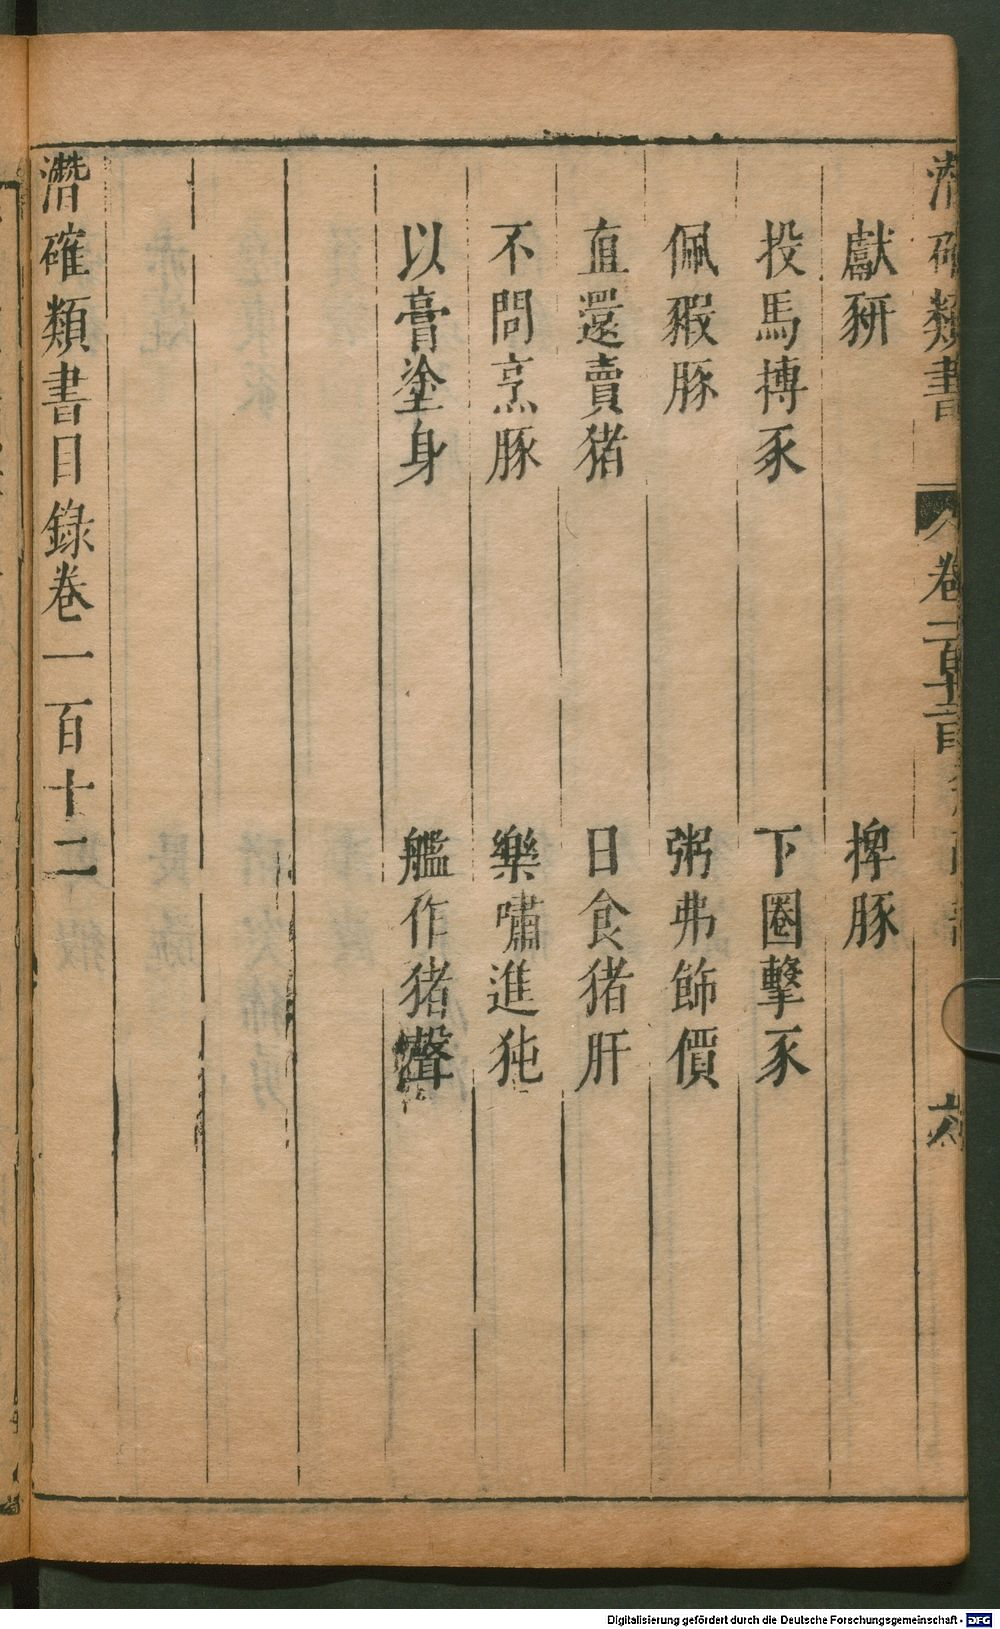 潛確類書
卷一百十二
六
獻豜
捭豚
投馬摶豕
下圈擊豕
佩豭豚
粥弗飾價
直還賣猪
日食猪肝
不問烹豚
樂嘯進㹠
以膏塗身
艦作猪聲
潛確類書目錄卷一百十二
Digitalisierung gefördert durch die Deutsche Forschungsgemeinschaft - DFG